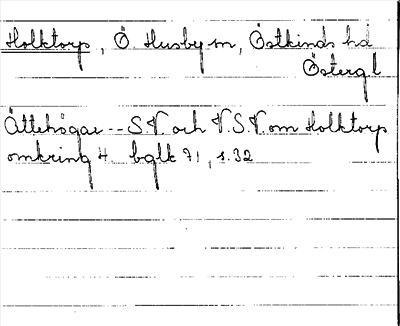 Holktorp, Ö. Husby sn, Östkinds hd
Östergl
Ättehögar -- S.V. och V.S.V. om Holktorp
omkring 4. bglk 71, s. 32